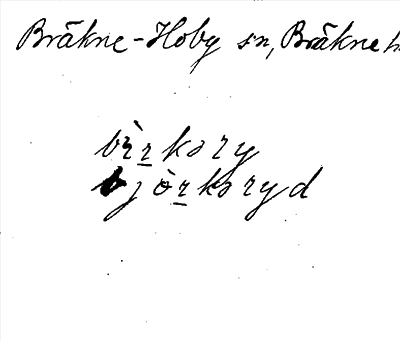 Bräkne-Hoby sn, Bräkne h
bìr̲kəry
bjòr̲kəryd